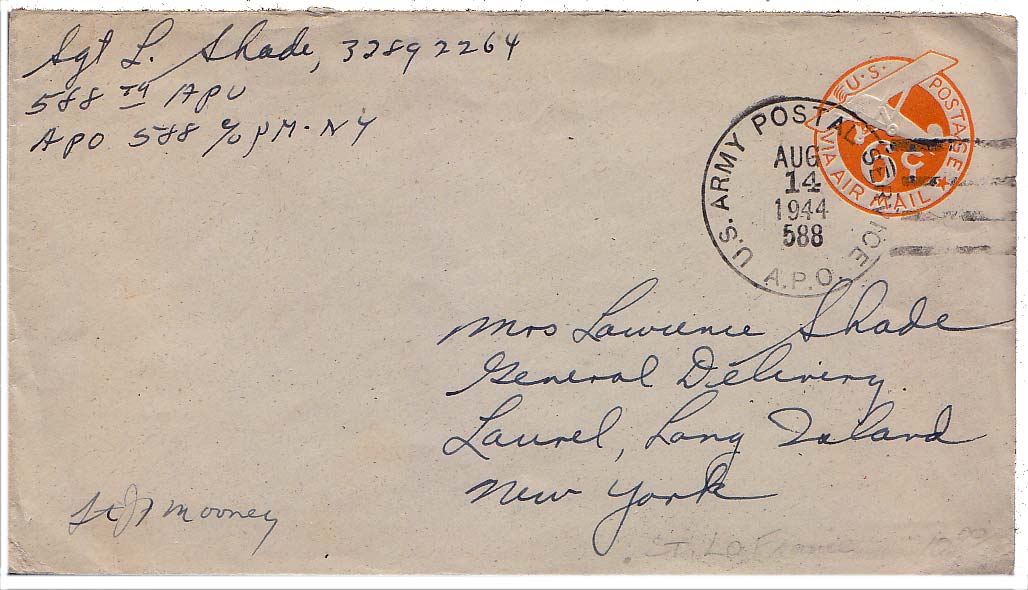 Sgt L. Shade, 32892264
588 TH APU
APO 588 c/o PM. NY
U.S. POSTAGE
6¢
VIA AIR MAIL
U.S. ARMY POSTAL SERVICE
AUG
14
1944
588
A.P.O.
Mrs Lawrence Shade
General Delivery
Laurel, Long Island
New York
Mooney
St. Lo France